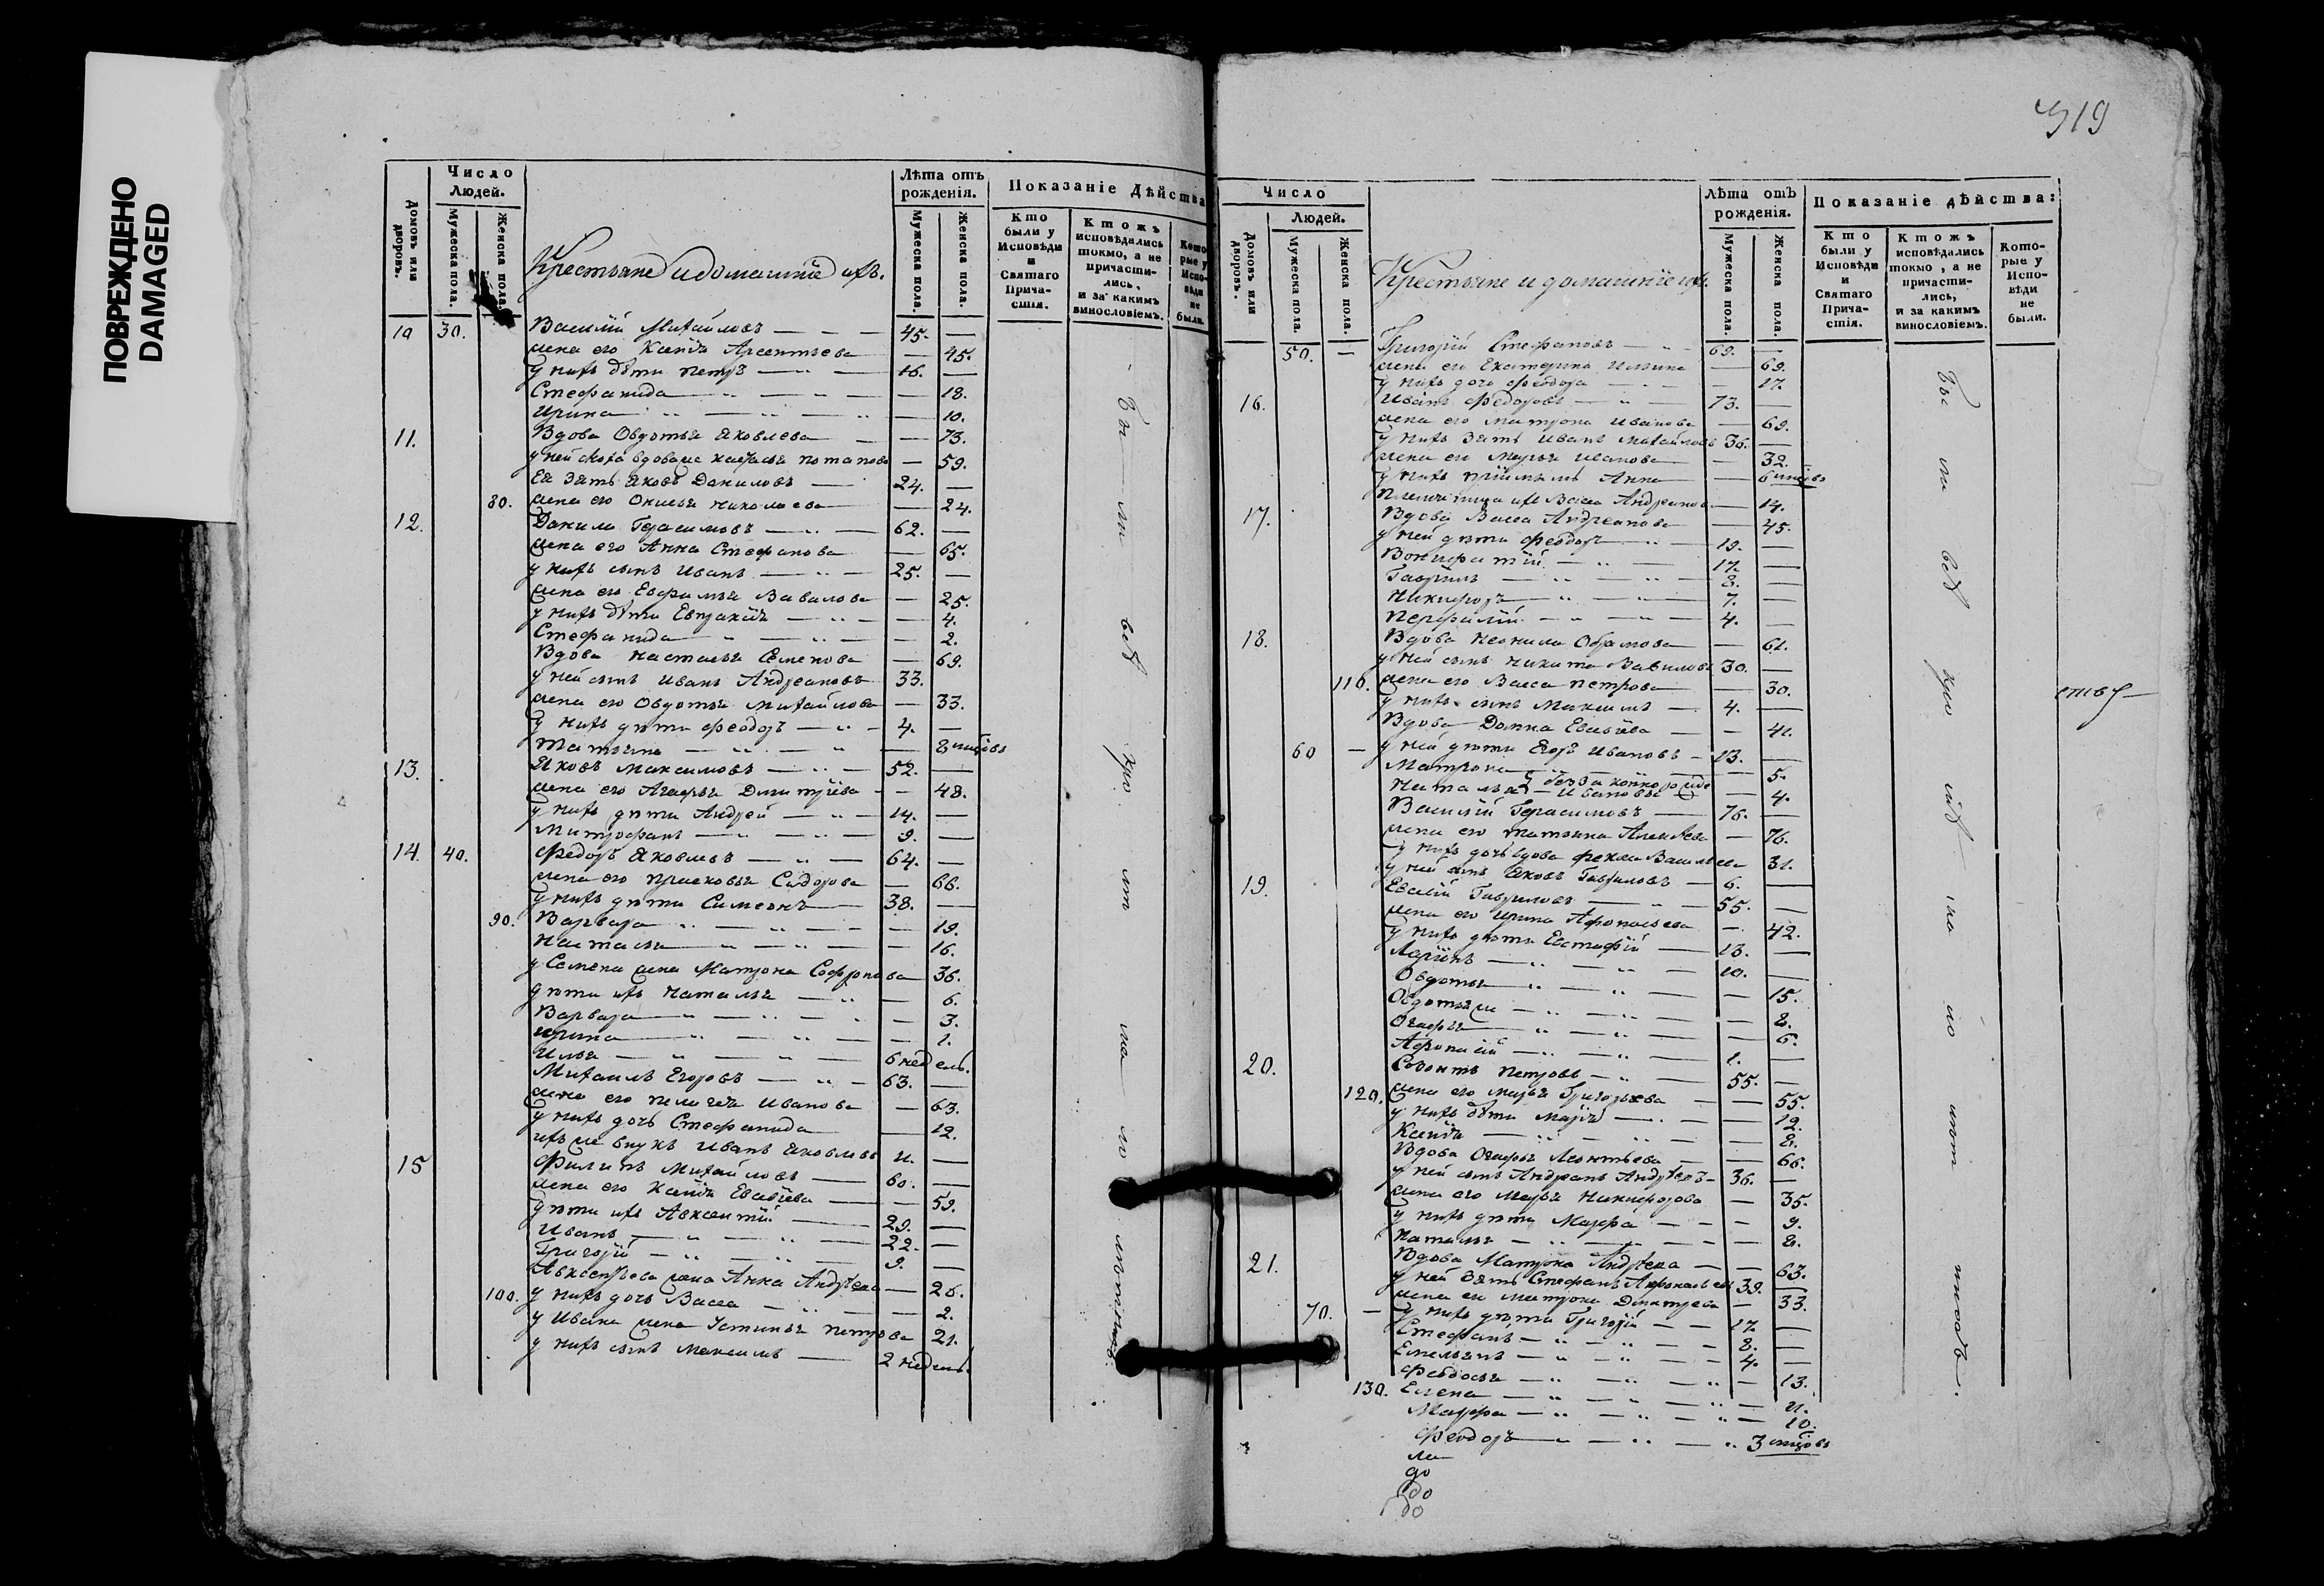 ПОВРЕЖДЕНО
DAMAGED
Домовъ или дворовъ.
Число Людей.
Мужеска пола.
Женска пола.
Крестьяне и домашнiе ихъ.
Лѣта отъ рожденiя.
Мужеска пола.
Женска пола.
Показанiе Дѣйства
Кто были у Исповѣди и Святаго Прича-стiя.
Ктожъ исповѣдались токмо, а не причасти-лись, и за какимъ винословiемъ.
Кото-рые у Испо-вѣди не были.
10 30. Василiй Михайловъ 45.
жена его Ксенiя Арсентьева 45.
у нихъ дѣти Петръ 16.
Стефанида 18.
Ирина 10.
11. Вдова Овдотья Яковлева 73.
у ней сноха вдова же Потапова 59.
Ея зять Яковъ Даниловъ 24.
80. жена его Николаева 24.
12. Данило Герасимовъ 62.
жена его Анна Стефанова 65.
у нихъ сынъ Иванъ 25.
жена его Евфимья Вавилова 25.
у нихъ дѣти Евпраксiя 4.
Стефанида 2.
Вдова Настасья Семенова 69.
у ней сынъ Иванъ Андреановъ 33.
жена его Овдотья Михайлова 33.
у нихъ дѣти Феодоръ 4.
Татьяна 8
13. Яковъ Максимовъ 52.
жена его Агафья Дмитрiева 48.
у нихъ дѣти Андрей 14.
Митрофанъ 9.
14. 40. Федоръ Яковлевъ 64.
жена его Прасковья Сидорова 66.
у нихъ дѣти Симеонъ 38.
90. Варвара 19.
Настасья 16.
у Семена жена Матрона Софронова 36.
дѣти ихъ Наталья 6.
Варвара 3.
Ирина 1.
Илья 6 недель.
Михаилъ Егоровъ 63.
жена его Пелагея Иванова 63.
у нихъ дочь Стефанида 12.
ихъ же внукъ Иванъ Яковлевъ 11.
15 Филипъ Михайловъ 60.
жена его Ксенiя Евсевiева 59.
дѣти ихъ Авксентiй 29.
Иванъ 22.
Григорiй 9.
Авксентьева жена Анна Андреева 26.
100. у нихъ дочь Васса 2.
у Ивана жена Устинья Петрова 21.
у нихъ сынъ Максимъ 2 недель.
319
Домовъ или дворовъ.
Число
Людей.
Мужеска пола.
Женска пола.
Крестьяне и домашнiе ихъ.
Лѣта отъ рожденiя.
Мужеска пола.
Женска пола.
Показанiе дѣйства:
Кто были у Исповѣди и Святаго Прича-стiя.
Ктожъ исповѣдались токмо, а не причасти-лись, и за какимъ винословiемъ.
Кото-рые у Испо-вѣди не были.
50. Григорiй Стефановъ 69.
жена его Екатерина 69.
у нихъ дочь Феодора 17.
16. Иванъ Федоровъ 73.
жена его Матрона Иванова 69.
у нихъ зять Иванъ Михайловъ 36.
жена его Марья Иванова 32.
у нихъ Анна 6
Племяница ихъ Васса Андреанова 14.
17. Вдова Васса Андреанова 45.
у ней дѣти Феодоръ 19.
Вонифатiй 17.
Гаврiилъ 8.
Никифоръ 7.
Перфилiй 4.
18. Вдова Неонила Обрамова 61.
у ней сынъ Никита Вавиловъ 30.
110. жена его Васса Петрова 30.
у нихъ сынъ Максимъ 4.
Вдова Домна Евсевiева 41.
60 у ней дѣти Егоръ Ивановъ 13.
Матрона 5.
Наталья 4.
Василiй Герасимовъ 76.
жена его Татьяна Алексѣева 76.
у нихъ дочь вдова Фекла Васильева 31.
у ней сынъ Яковъ Гавриловъ 6.
19. Евсевiй Гавриловъ 55.
жена его Ирина Афонасьева 42.
у нихъ дѣти Евстафiй 13.
Ларiонъ 10.
Овдотья 15.
Овдотья же 8.
Огафья 6.
Афонасiй 1.
20. Созонтъ Петровъ 55.
120. жена его Марья Григорьева 55.
у нихъ дѣти Марiя 12.
Ксенiя 8.
Вдова Огафья Леонтьева 66.
у ней сынъ Андреанъ Андреевъ 36.
жена его Марья Никифорова 35.
у нихъ дѣти Марфа 9.
Наталья 8.
21. Вдова Матрона Андреева 63.
у ней зять Стефанъ Афонасьевъ 39.
жена ево Матрона Дмитрева 33.
70. у нихъ дѣти Григорiй 17
Стефанъ 8.
Емельянъ 4.
Феодосья 13.
130. Елена 11.
Марфа 10.
Феодоръ 3